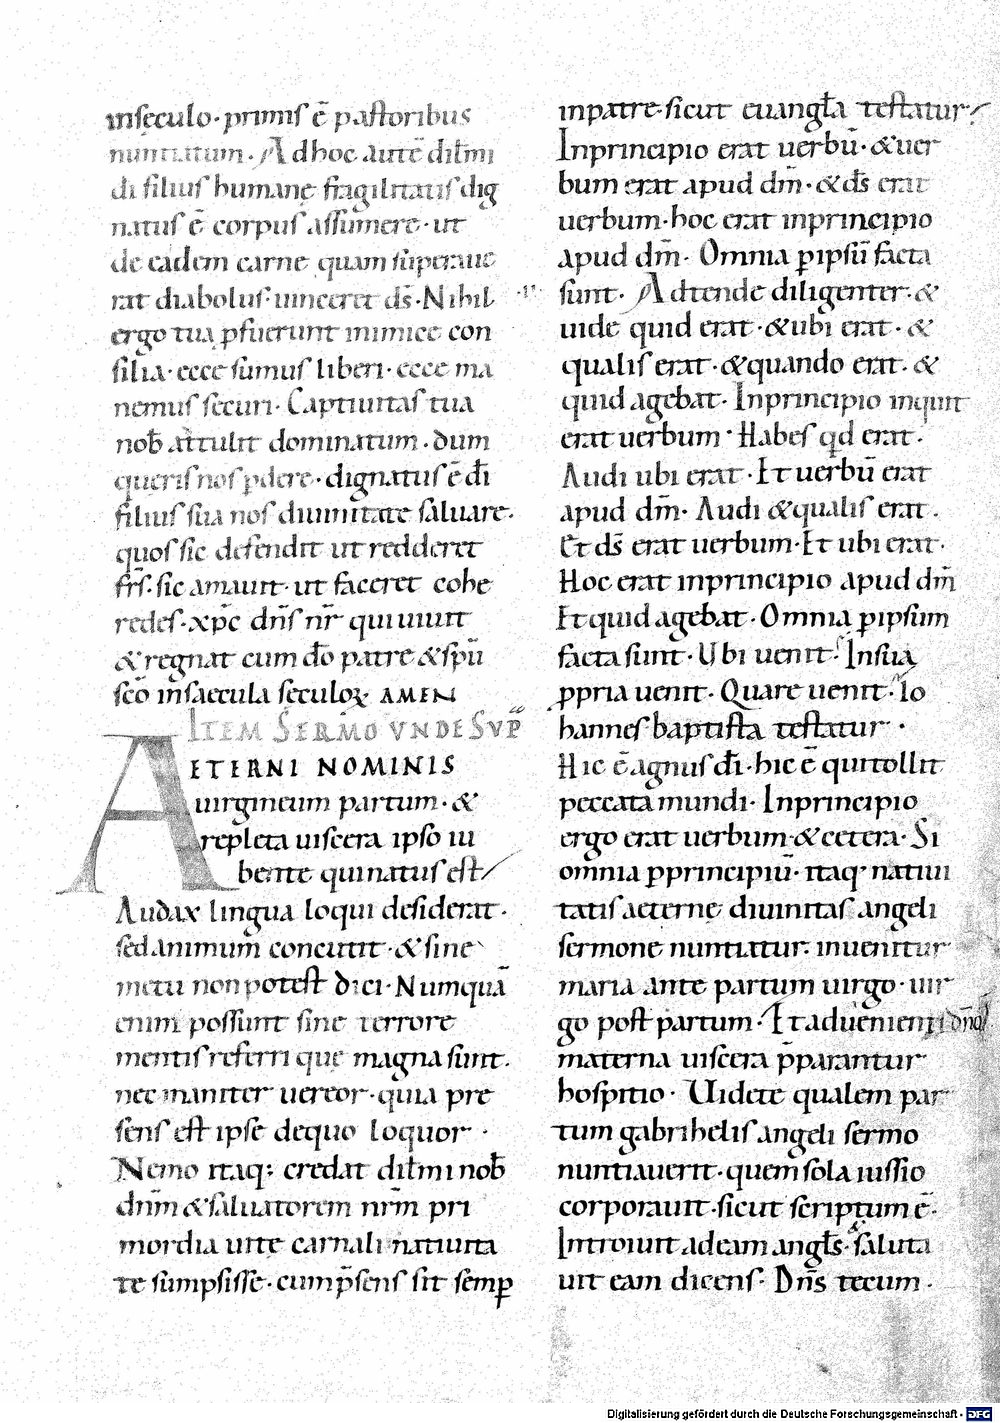 inseculo· primis ē pastoribus
nuntiatum· Adhoc autē dilm̄i
di filius humanę fragilitatis dig
natus ē corpus assumere· ut
de eadem carne quam superaue
rat diabolus· uinceret ds̄· Nihil
ergo tua ꝓfuerunt inimice con
silia· ecce sumus liberi· ecce ma
nemus securi· Captiuitas tua
nob̄ attulit dominatum· dum
queris nos ꝑdere· dignatus ē dī
filius sua nos diuinitate saluare·
quos sic defendit ut redderet
fr̄s· sic amauit· ut faceret cohe
redes· xp̄c dn̄s nr̄ qui uiuit
& regnat cum dō patre & sp̄ū
sc̄ō insaecula seculoꝝ AMEN
ITEM SERMO UNDE SUP̄
AETERNI NOMINIS
uirgineum partum· &
repleta uiscera ipso iu
bente quinatus est
Audax lingua loqui desiderat·
sed animum concutit· & sine
metu non potest dici· Numquā
enim possunt sine terrore
mentis referri que magna sunt·
nec inaniter uereor· quia pre
sens est ipse dequo loquor·
Nemo itaq; credat dilm̄i nob̄
dn̄m & saluatorem nr̄m pri
mordia uitę carnali natiuita
te sumpsisse· cum p̄sens sit semꝑ
inpatre sicut euangl̄a testatur
Inprincipio erat uerbū· & uer
bum erat apud dm̄· & ds̄ erat
uerbum· hoc erat inprincipio
apud dm̄· Omnia ꝑipsū facta
sunt· Adtende diligenter· &
uide quid erat· & ubi erat· &
qualis erat· & quando erat· &
quid agebat· Inprincipio inquit
erat uerbum· Habes qd̄ erat·
Audi ubi erat· Et uerbū erat
apud dm̄· Audi & qualis erat·
Et ds̄ erat uerbum· Et ubi erat·
Hoc erat inprincipio apud dm̄
Et quid agebat· Omnia ꝑipsum
facta sunt· Ubi uenit· Insua
ꝓpria uenit· Quare uenit· Io
hannes baptista testatur·
Hic ē agnus dī· hic ē quitollit
peccata mundi· Inprincipio
ergo erat uerbum· & cetera· Si
omnia ꝑprincipiū· itaq· natiui
tatis aeternę diuinitas angeli
sermone nuntiatur· inuenitur
maria ante partum uirgo· uir
go post partum· Et aduenienti dn̄o
materna uiscera p̄parantur
hospitio· Uidete qualem par
tum gabrihelis angeli sermo
nuntiauerit· quem sola iussio
corporauit· sicut scriptum ē·
Introiuit adeam angl̄s· & saluta
uit eam dicens· Dn̄s tecum·
Digitalisierung gefördert durch die Deutsche Forschungsgemeinschaft - DFG